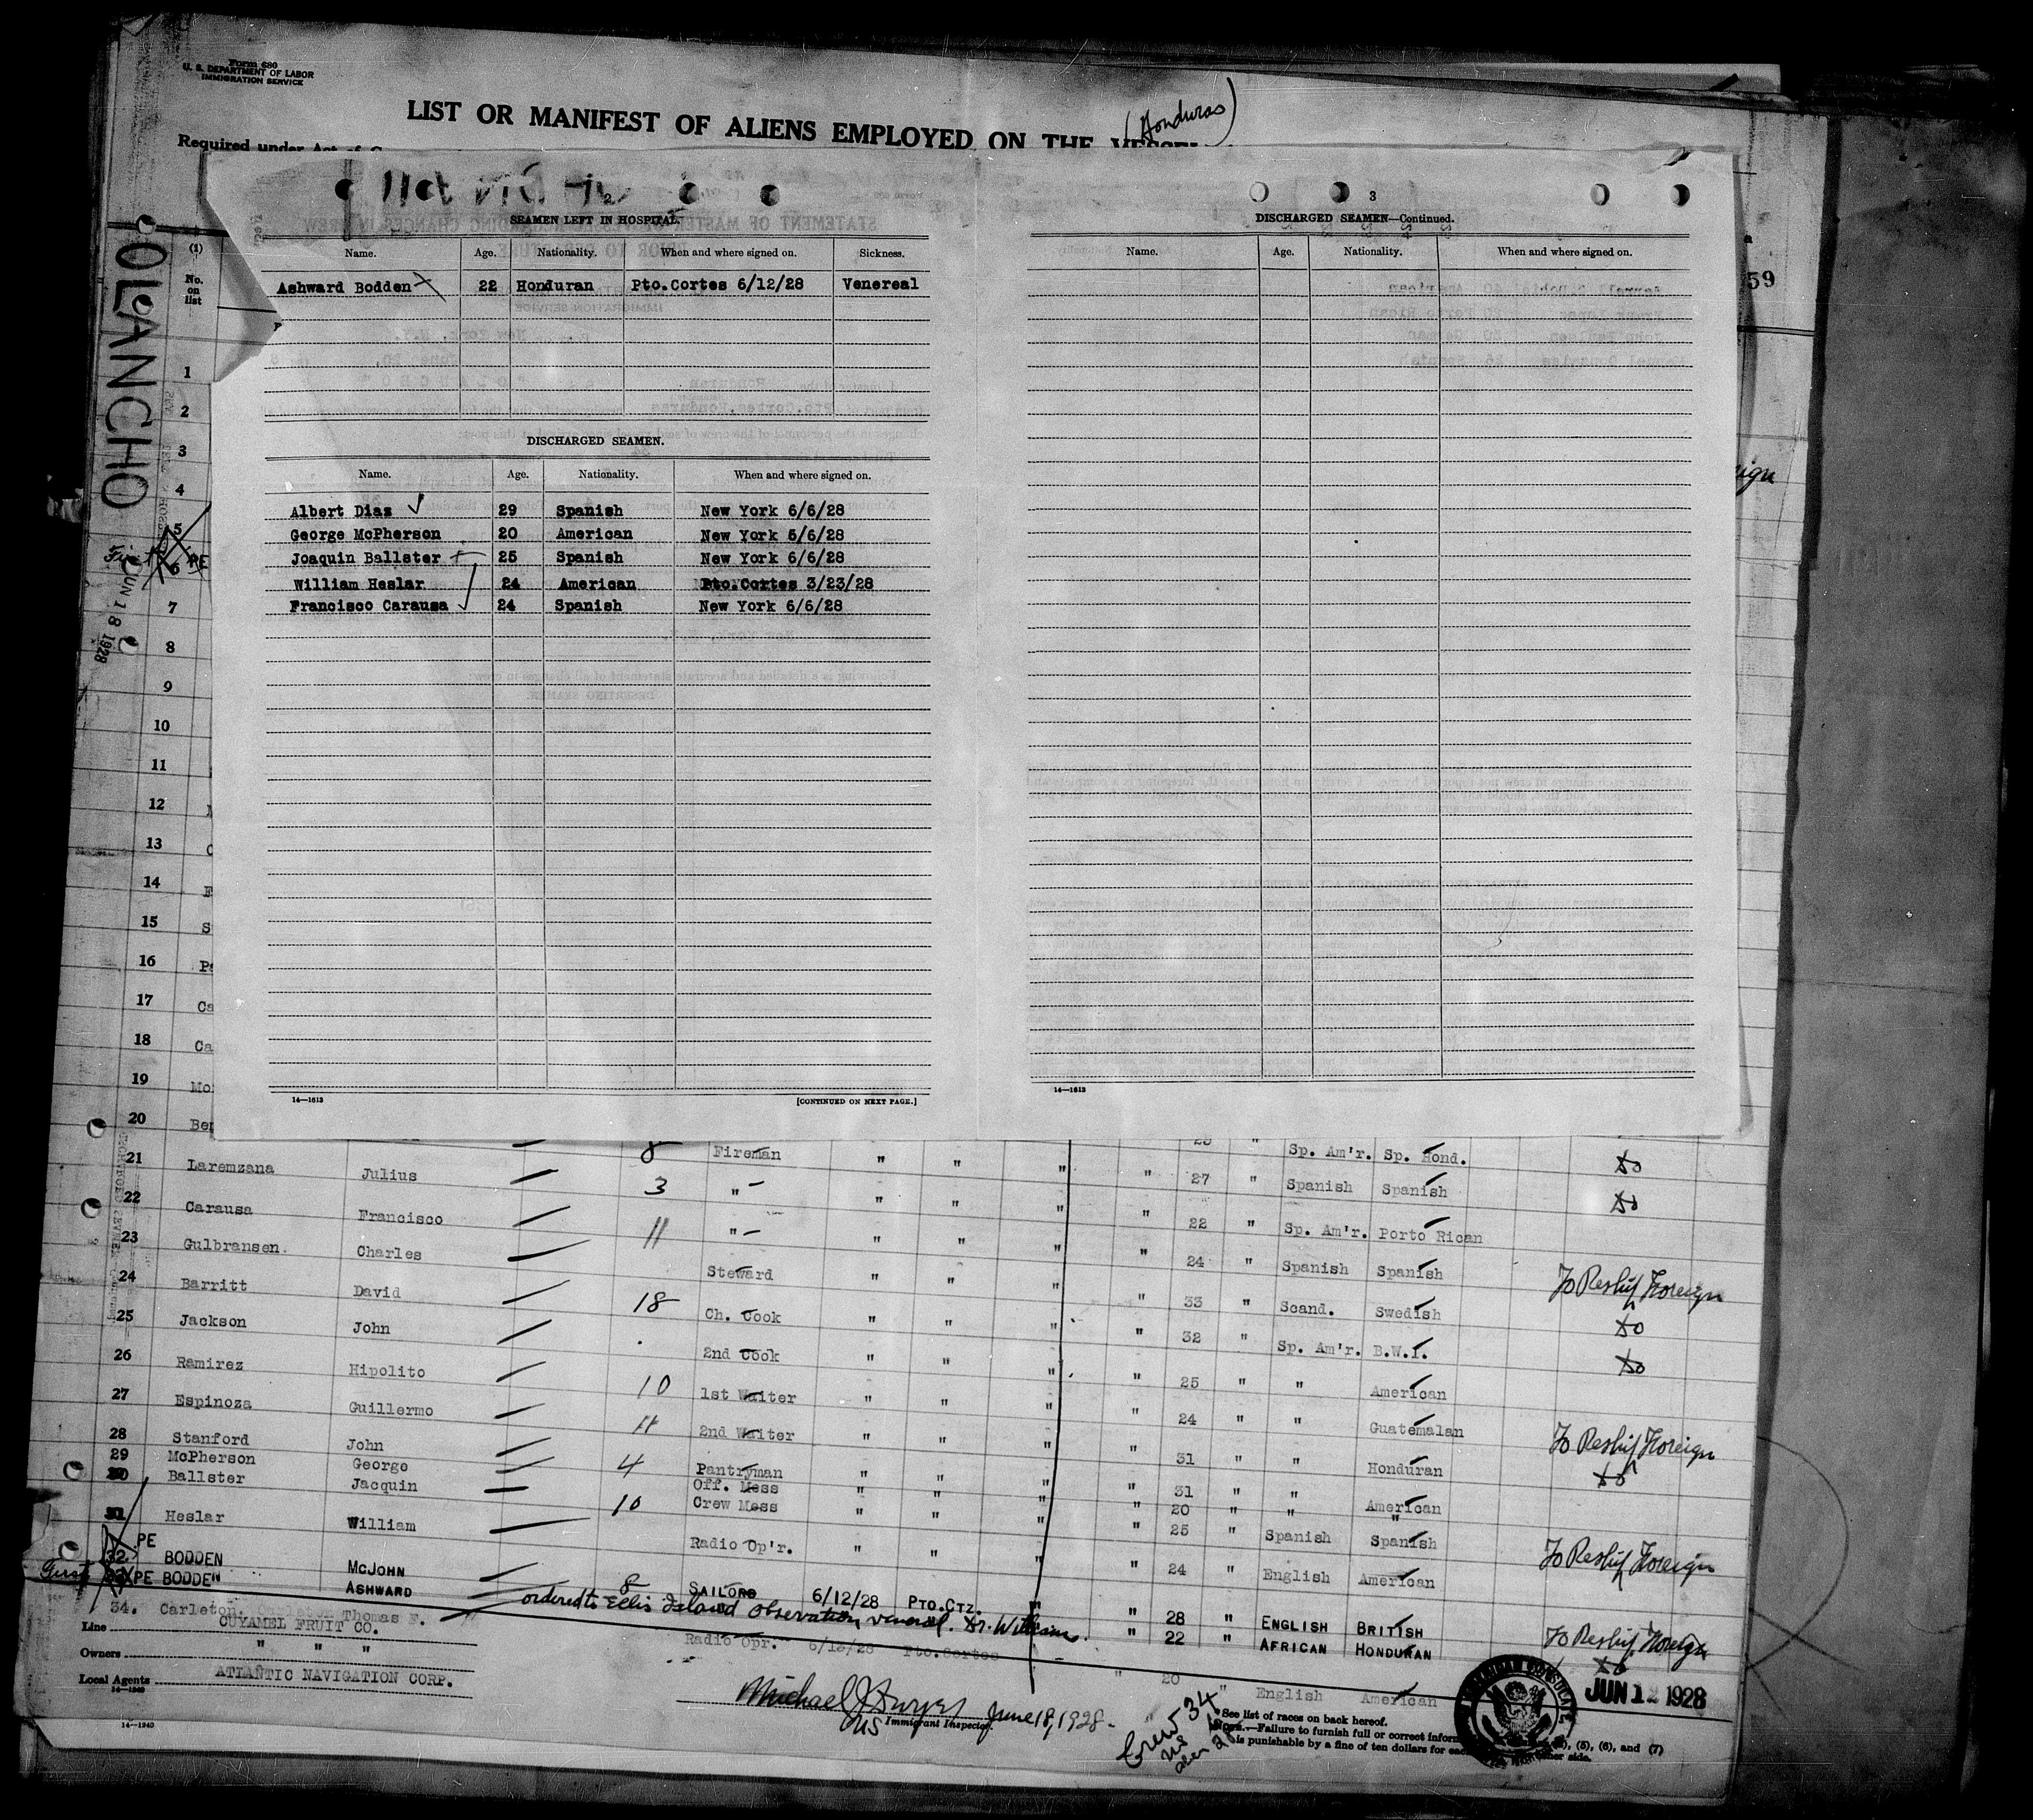 Form 680
U. S. DEPARTMENT OF LABOR
IMMIGRATION SERVICE
(Honduras)
LIST OR MANIFEST OF ALIENS EMPLOYED ON THE VESSEL
Required under Act of C
OLANCHO
JUN 18 1928
(1)
No. on list
59
2
SEAMEN LEFT IN HOSPITAL.
Name. Age. Nationality. When and where signed on. Sickness.
Ashward Bodden 22 Honduran Pto.Cortes 6/12/28 Venereal
DISCHARGED SEAMEN.
Name. Age. Nationality. When and where signed on.
Albert Diaz 29 Spanish New York 6/6/28
George McPherson 20 American New York 5/6/28
Joaquin Ballster 25 Spanish New York 6/6/28
William Heslar 24 American Pto.Cortes 3/23/28
Francisco Carausa 24 Spanish New York 6/6/28
14—1613 [CONTINUED ON NEXT PAGE.]
3
DISCHARGED SEAMEN—Continued.
Name. Age. Nationality. When and where signed on.
14—1613
1
2
3
4
5
6 PE
7
8
9
10
11
12
13
14
15
16
17
18
19
20
8 Fireman " " " " 25 " Sp. Am'r. Sp. Hond.
21 Laremzana Julius 3 " " " " " 27 " Spanish Spanish
22 Carausa Francisco 11 " " " " " 22 " Sp. Am'r. Porto Rican
23 Gulbransen Charles Steward " " " " 24 " Spanish Spanish To Reship Foreign
24 Barritt David 18 Ch. Cook " " " " 33 " Scand. Swedish
25 Jackson John 2nd Cook " " " " 32 " Sp. Am'r. B.W.I.
26 Ramirez Hipolito 10 1st Waiter " " " " 25 " " American
27 Espinoza Guillermo 11 2nd Waiter " " " " 24 " " Guatemalan To Reship Foreign
28 Stanford John 4 Pantryman " " " " 31 " " Honduran
29 McPherson George Off. Mess " " " " 31 " " American
30 Ballster Jacquin 10 Crew Mess " " " " 20 " " "
31 Heslar William Radio Op'r. " " " " 25 " Spanish Spanish To Reship Foreign
24 " English American
32 PE BODDEN McJOHN 8 SAILOR 6/12/28 PTO.CTZ. " " 28 " ENGLISH BRITISH To Reship Foreign
PE BODDEN ASHWARD " 22 " AFRICAN HONDURAN
ordered to Ellis Island Observation, veneral. Dr. William
34. Carleton, Thomas F. Radio Opr. 6/12/28 Pto.Cortes " 20 " English American
Line CUYAMEL FRUIT CO.
Owners " " "
Local Agents ATLANTIC NAVIGATION CORP.
14—1240
June 18, 1928.
Immigrant Inspector.
Crew 34
See list of races on back hereof.
NOTE.—Failure to furnish full or correct
is punishable by a fine of ten dollars for
(5), (6), and (7)
other side.
AMERICAN CONSULATE
JUN 12 1928